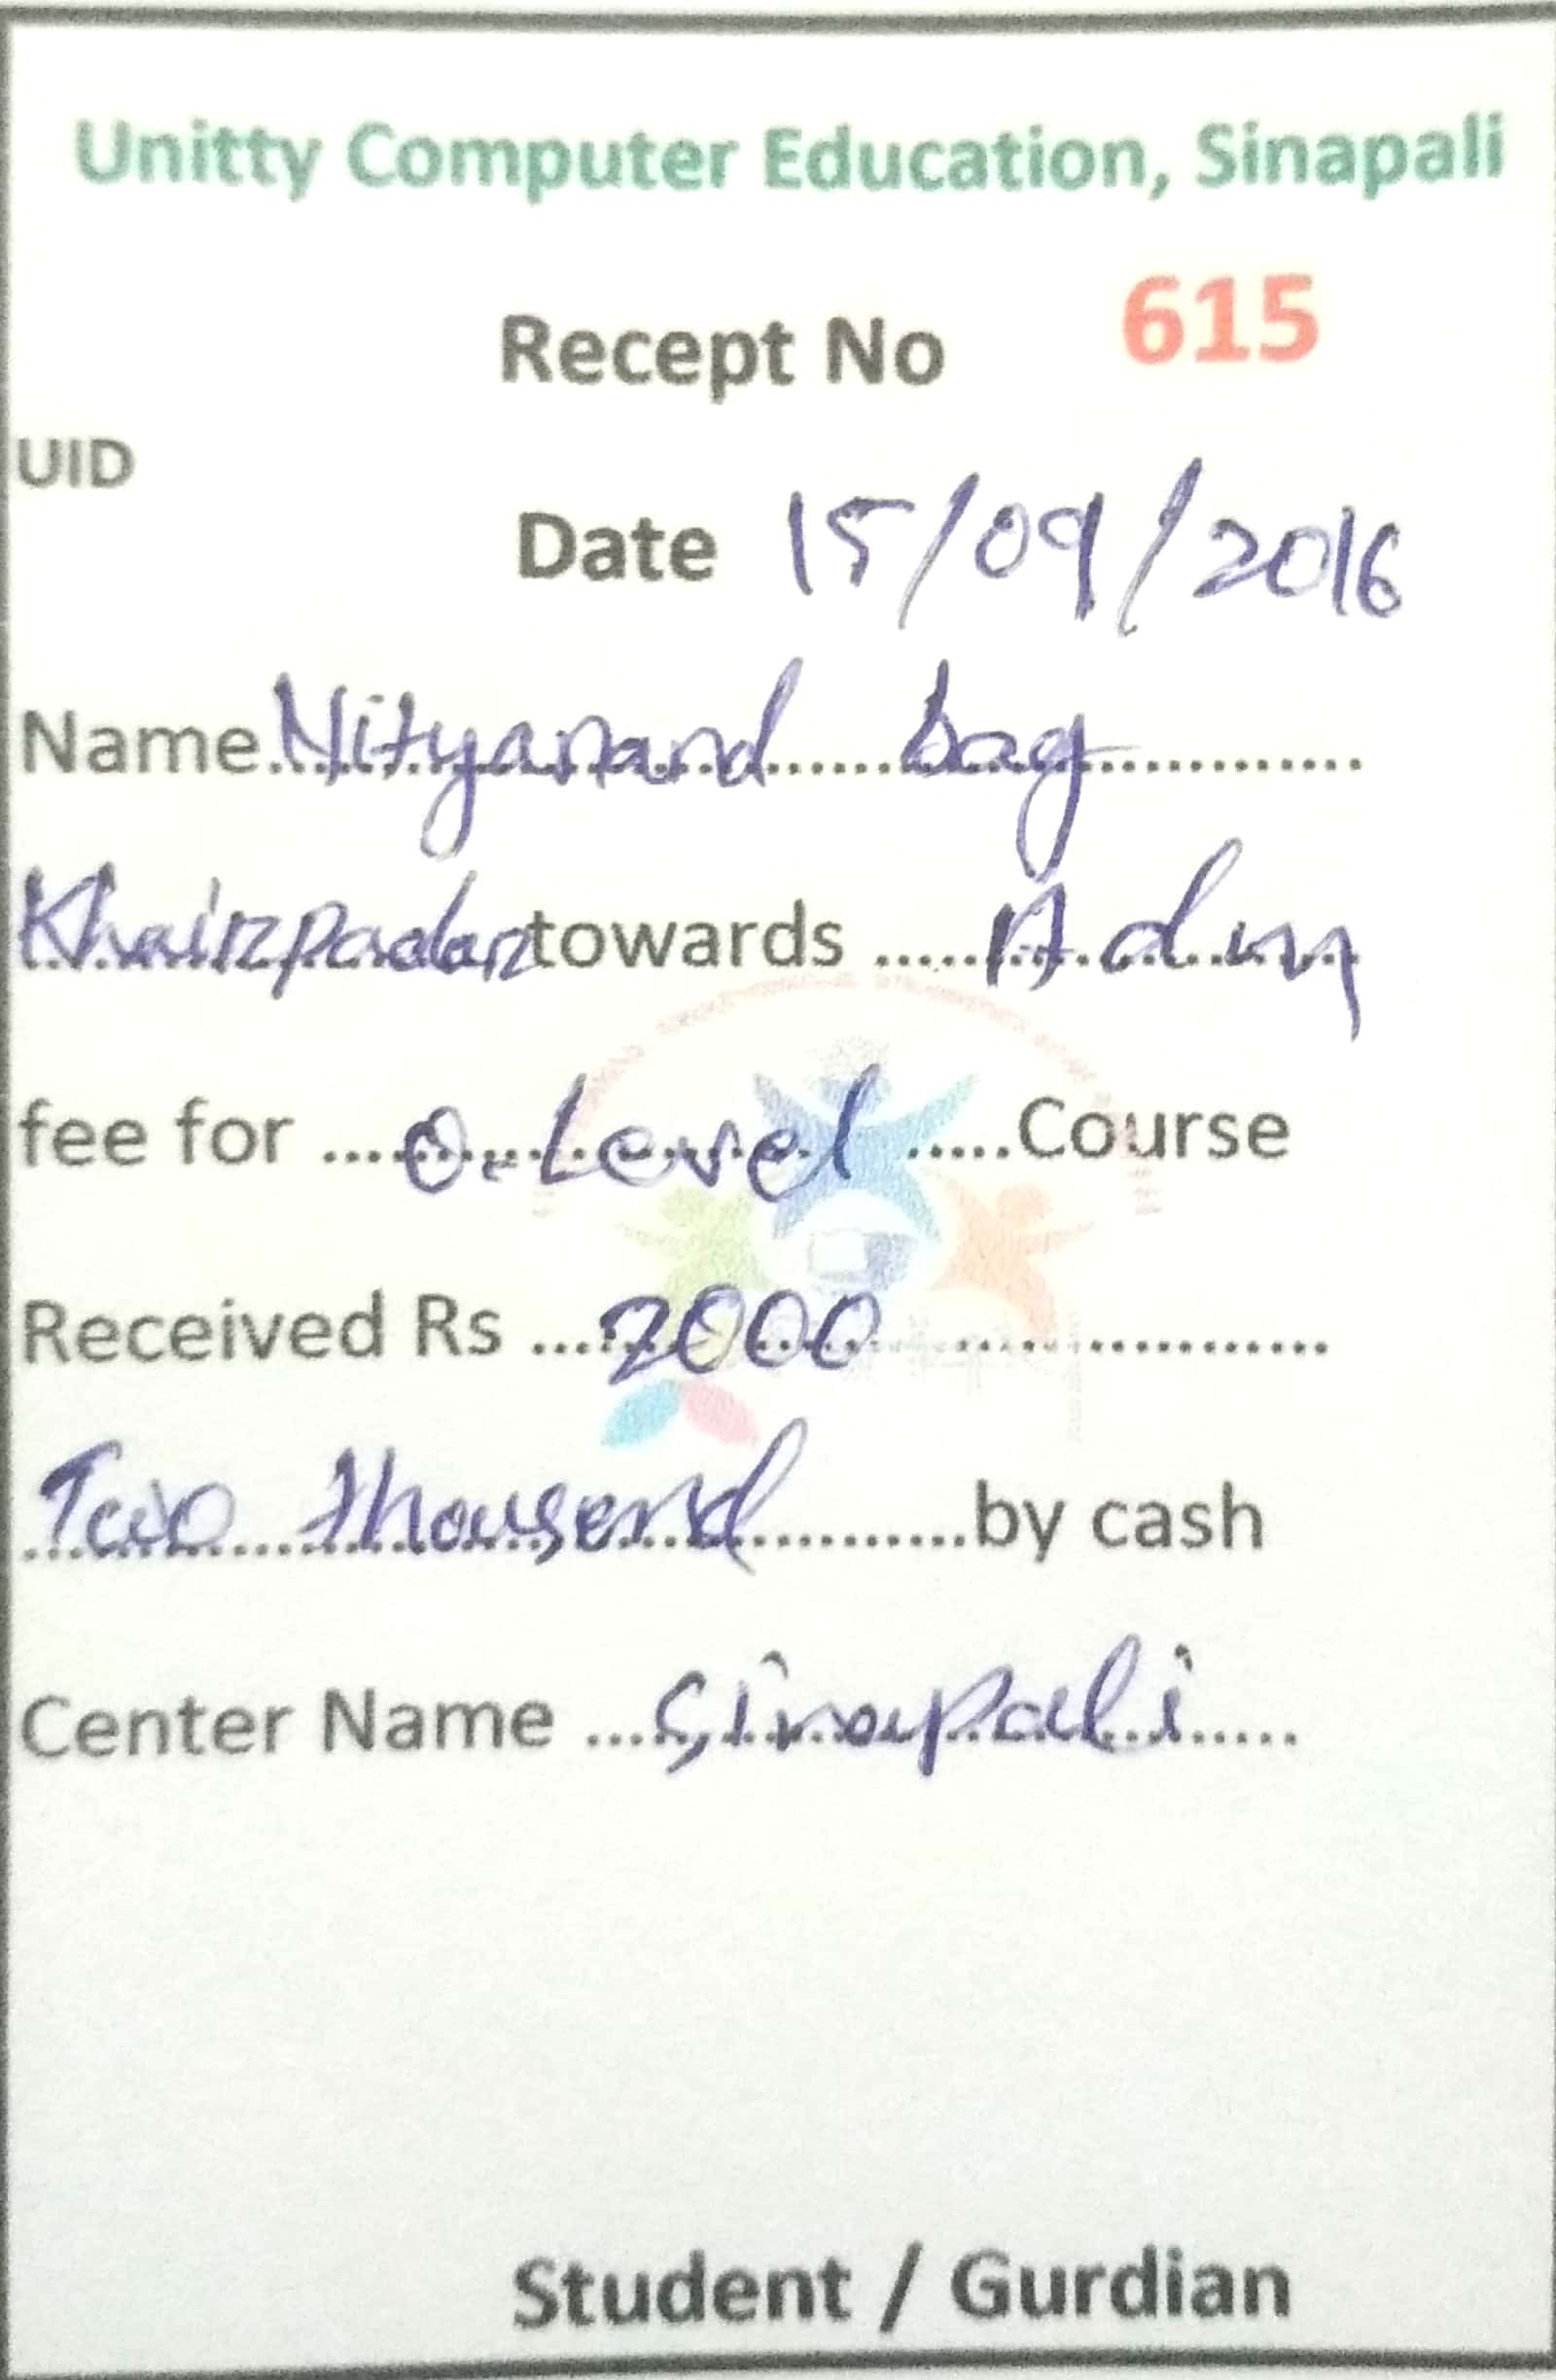 Unitty Computer Education, Sinapali
Recept No 615
UID
Date 15/09/2016
Name Nityanand bag
Khairpadar towards Adm
fee for O-Level Course
Received Rs 2000
Two thousend by cash
Center Name Sinapali
Student / Gurdian